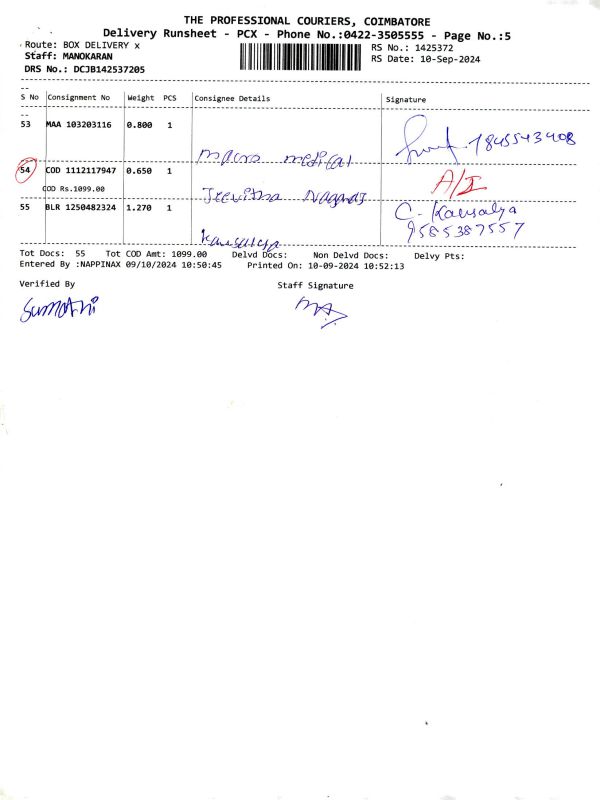 THE PROFESSIONAL COURIERS, COIMBATORE
Delivery Runsheet - PCX - Phone No.:0422-3505555 - Page No.:5
Route: BOX DELIVERY x
RS No.: 1425372
Staff: MANOKARAN
RS Date: 10-Sep-2024
DRS No.: DCJB142537205
S No Consignment No Weight PCS Consignee Details Signature
53 MAA 103203116 0.800 1
macro medical 7845543408
54 COD 1112117947 0.650 1 A/I
COD Rs.1099.00 Jeevitha Nagaraj
55 BLR 1250482324 1.270 1 C. Kausalya
kausalya 9585387557
Tot Docs: 55 Tot COD Amt: 1099.00 Delvd Docs: Non Delvd Docs: Delvy Pts:
Entered By :NAPPINAX 09/10/2024 10:50:45 Printed On: 10-09-2024 10:52:13
Verified By Staff Signature
Sumathi